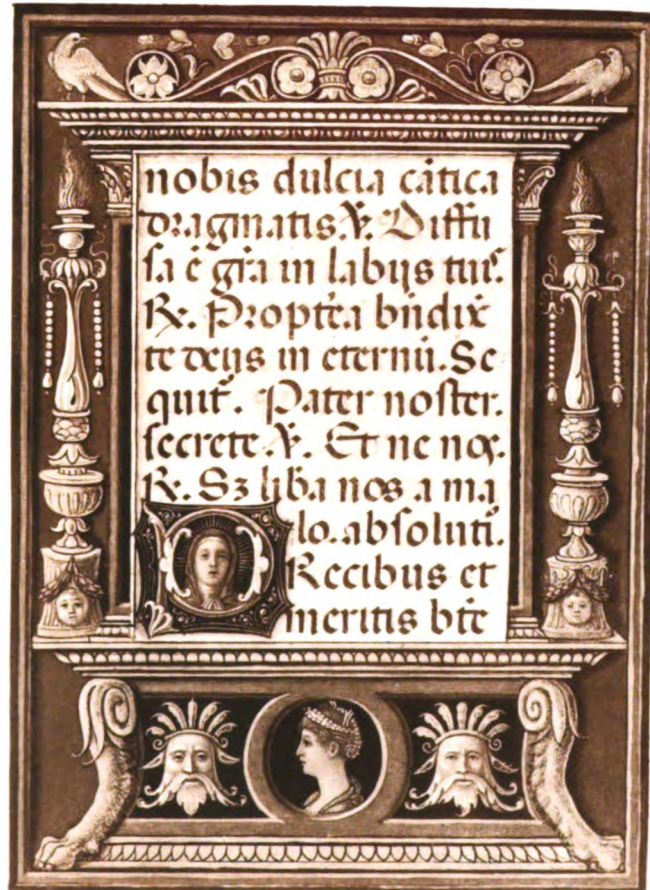 nobis dulcia cãtica
dragmatis. ℣. Diffu
sa ẽ gr̃a in labijs tuis̃.
℟. Propt̃ea bñdix̃
te deus in eternũ. Se
quit̃. Pater noster.
secrete. ℣. Et ne nos.
℟. Sꝫ lib̃a nos a ma
lo. absoluti̾.
PRecibus et
meritis bt̃e